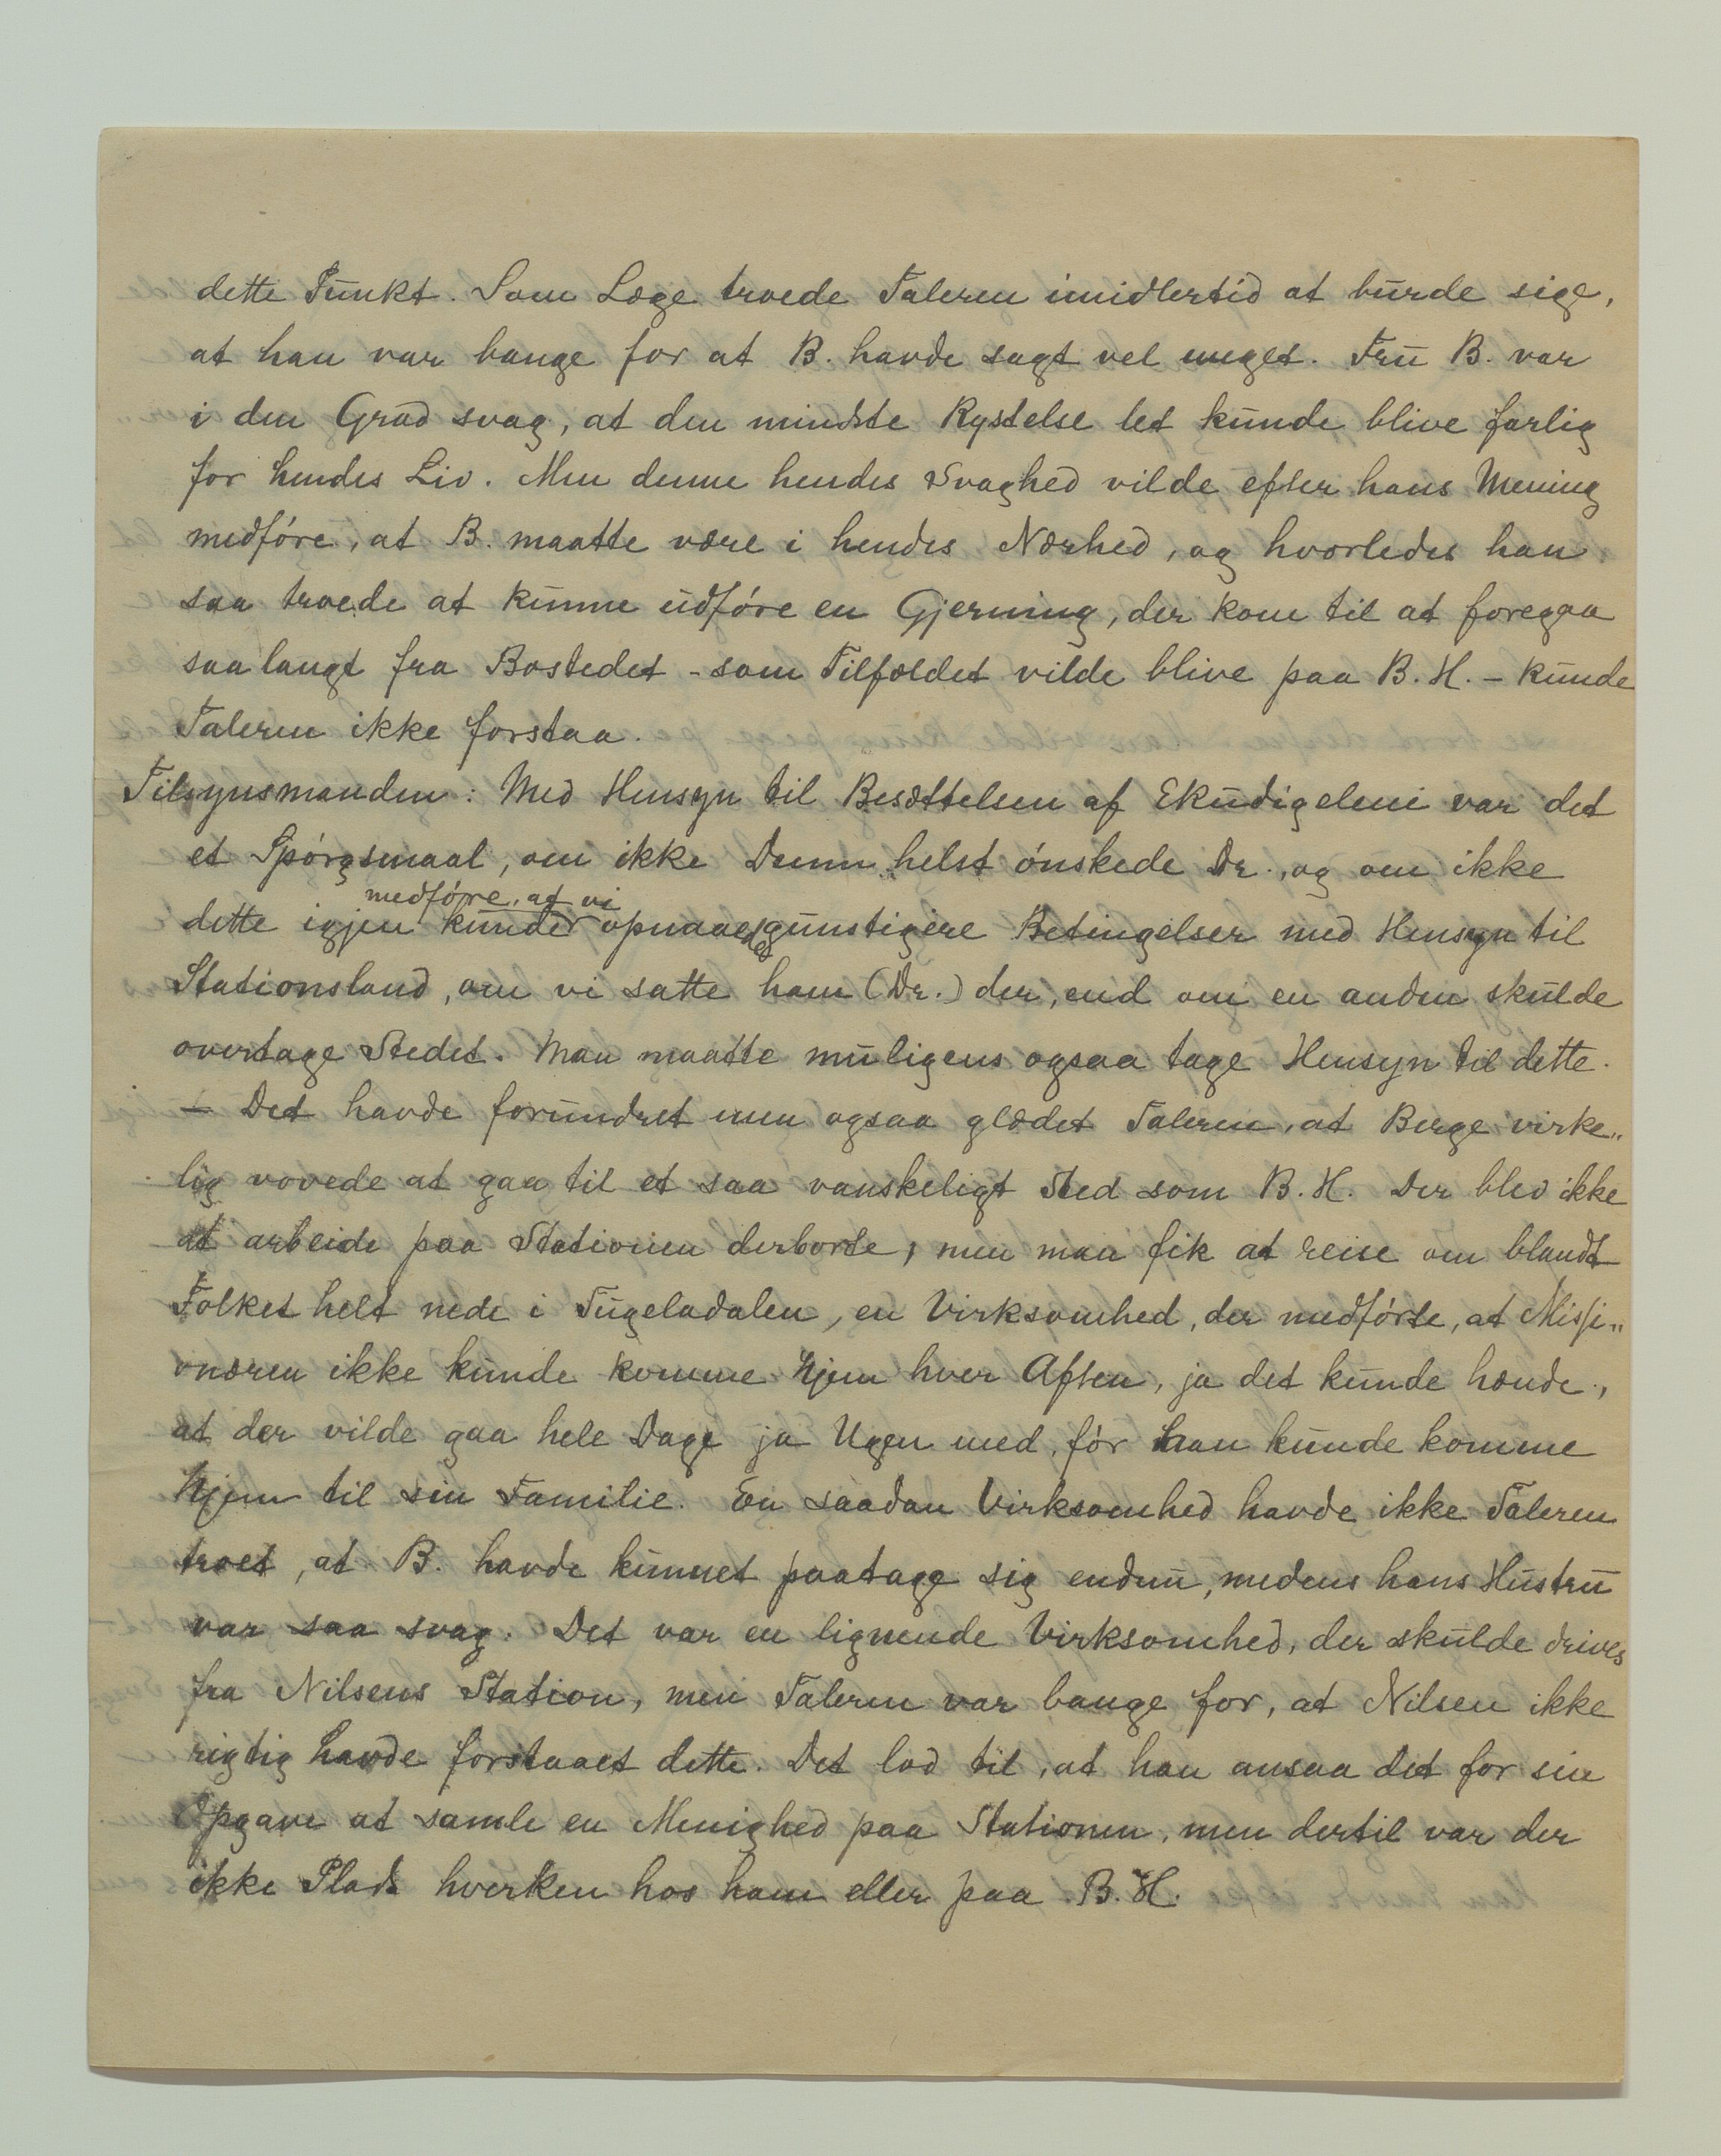 dette Punkt. Som Læge troede Taleren imidlertid at burde sige,
at han var bange for at B. havde sagt vel meget. Fru B. var
i den Grad svag, at den mindste Rystelse let kunde blive farlig
for hendes Liv. Men denne hendes Svaghed vilde efter hans Mening
medføre, at B. maatte være i hendes Nærhed, og hvorledes han
saa troede at kunne udføre en Gjerning, der kom til at foregaa
saa langt fra Bostedet - som Tilfældet vilde blive paa B. H. - kunde
Taleren ikke forstaa.
Tilsynsmanden: Med Hensyn til Besættelsen af Ekudigeleni var det
et Spørgsmaal, om ikke Dunn helst ønskede Dr., og om ikke
medføre, at vi
dette igjen kunde opnaaede gunstigere Betingelser med Hensyn til
Stationsland, om vi satte ham (Dr.) der, end om en anden skulde
overtage Stedet. Man maatte muligens ogsaa tage Hensyn til dette.
- Det havde forundret men ogsaa glædet Taleren, at Berge virke„
lig vovede at gaa til et saa vanskeligt Sted som B. H. Der blev ikke
at arbeide paa Stationen derborte, men man fik at reise om blandt
Folket helt nede i Tugeladalen, en Virksomhed, der medførte, at Missi„
onæren ikke kunde komme hjem hver Aften, ja det kunde hænde,
at der vilde gaa hele Dage ja Ugen med, før han kunde komme
hjem til sin Familie. En saadan Virksomhed havde ikke Taleren
troet, at B. havde kunnet paatage sig endnu, medens hans Hustru
var saa svag. Det var en lignende Virksomhed, der skulde drives
fra Nilsens Station, men Taleren var bange for, at Nilsen ikke
rigtig havde forstaaet dette. Det lod til, at han ansaa det for sin
Opgave at samle en Menighed paa Stationen, men dertil var der
ikke Plads hverken hos ham eller paa B. H.